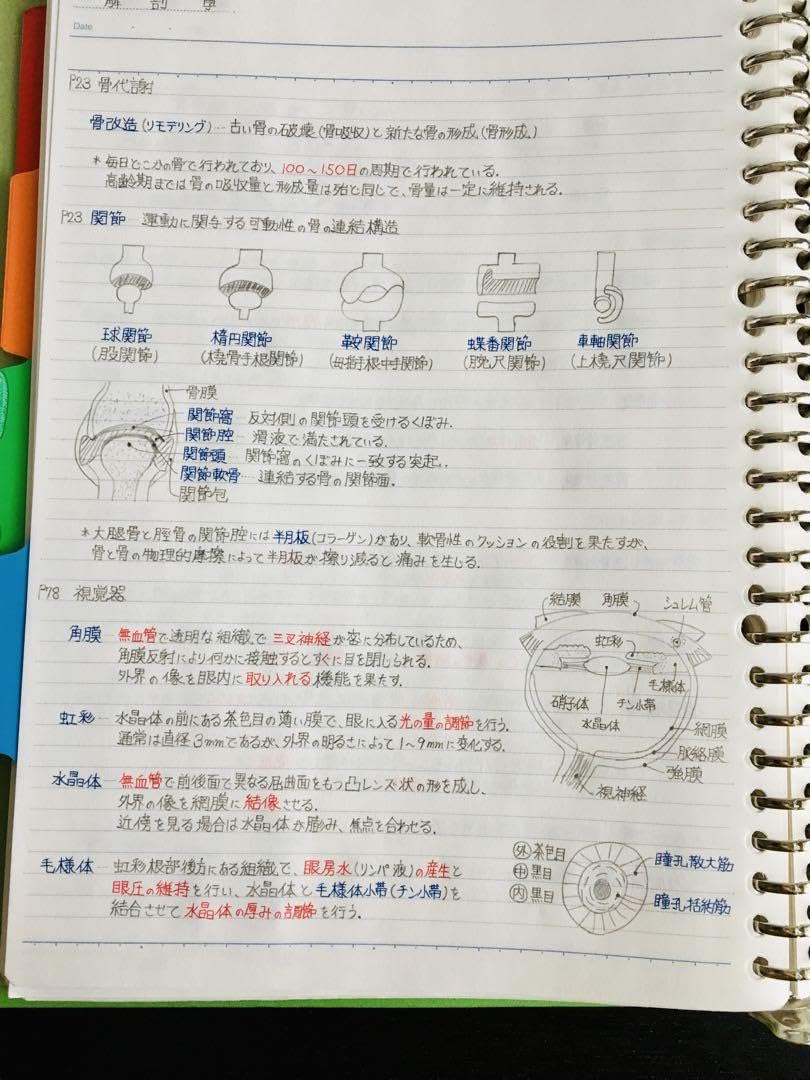 解剖学
Date
P23 骨代謝
骨改造(リモデリング)…古い骨の破壊(骨吸収)と新たな骨の形成(骨形成)
*毎日どこかの骨で行われており、100〜150日の周期で行われている。
高齢期までは骨の吸収量と形成量は殆ど同じで、骨量は一定に維持される。
P23 関節 運動に関与する可動性の骨の連結構造
球関節 楕円関節 鞍関節 蝶番関節 車軸関節
(股関節) (橈骨手根関節) (母指手根中手関節) (腕尺関節) (上橈尺関節)
骨膜
関節窩 反対側の関節頭を受けるくぼみ.
関節腔 滑液で満たされている.
関節頭 関節窩のくぼみに一致する突起.
関節軟骨 連結する骨の関節面.
関節包
*大腿骨と脛骨の関節腔には半月板(コラーゲン)があり、軟骨性のクッションの役割を果たすが、
骨と骨の物理的摩擦によって半月板が擦り減ると痛みを生じる.
P78 視覚器
角膜 無血管で透明な組織で三叉神経が密に分布しているため、
角膜反射により何かに接触するとすぐに目を閉じられる.
外界の像を眼内に取り入れる機能を果たす.
虹彩 水晶体の前にある茶色目の薄い膜で、眼に入る光の量の調節を行う.
通常は直径3mmであるが、外界の明るさによって1〜9mmに変化する.
水晶体 無血管で前後面で異なる屈曲面をもつ凸レンズ状の形を成し、
外界の像を網膜に結像させる.
近傍を見る場合は水晶体が膨み、焦点を合わせる.
毛様体 虹彩根部後方にある組織で、眼房水(リンパ液)の産生と
眼圧の維持を行い、水晶体と毛様体小帯(チン小帯)を
結合させて水晶体の厚みの調節を行う.
結膜 角膜 シュレム管
虹彩
毛様体
硝子体 チン小帯
水晶体
網膜
脈絡膜
強膜
視神経
外 茶色目
中 黒目
内 黒目
瞳孔散大筋
瞳孔括約筋